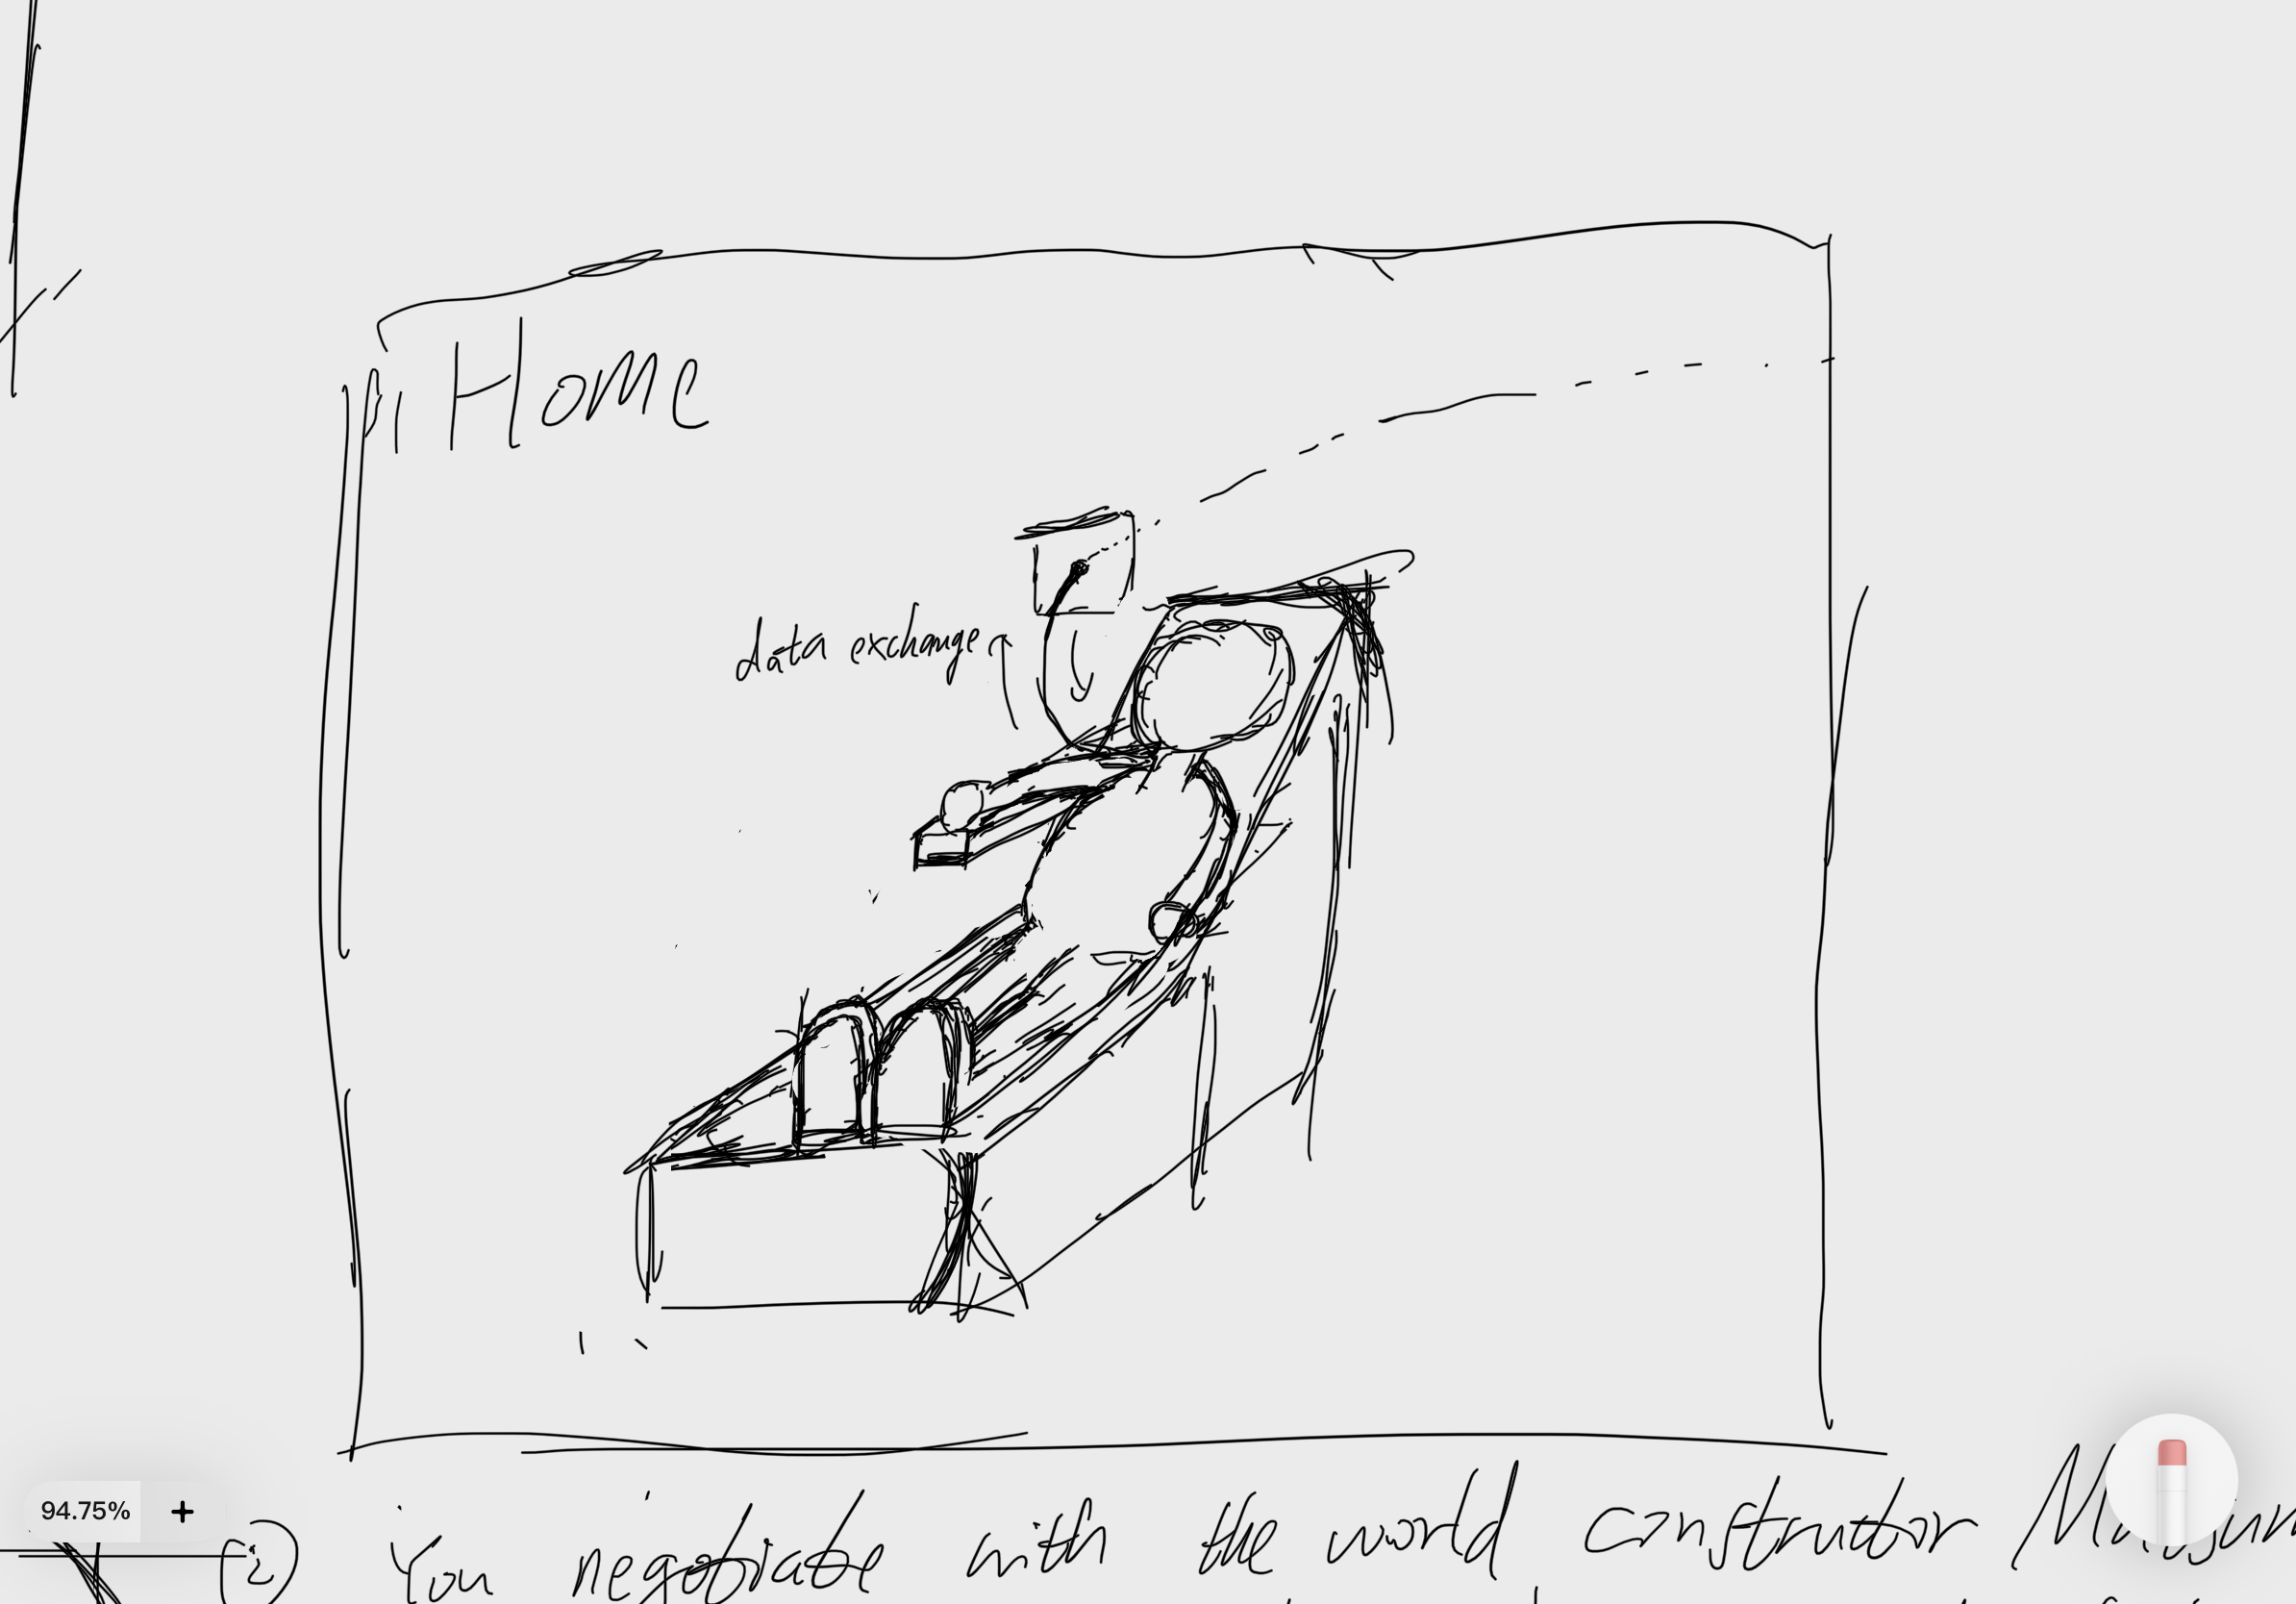 Home
data exchange
94.75% +
② You negotiate with the world constructor